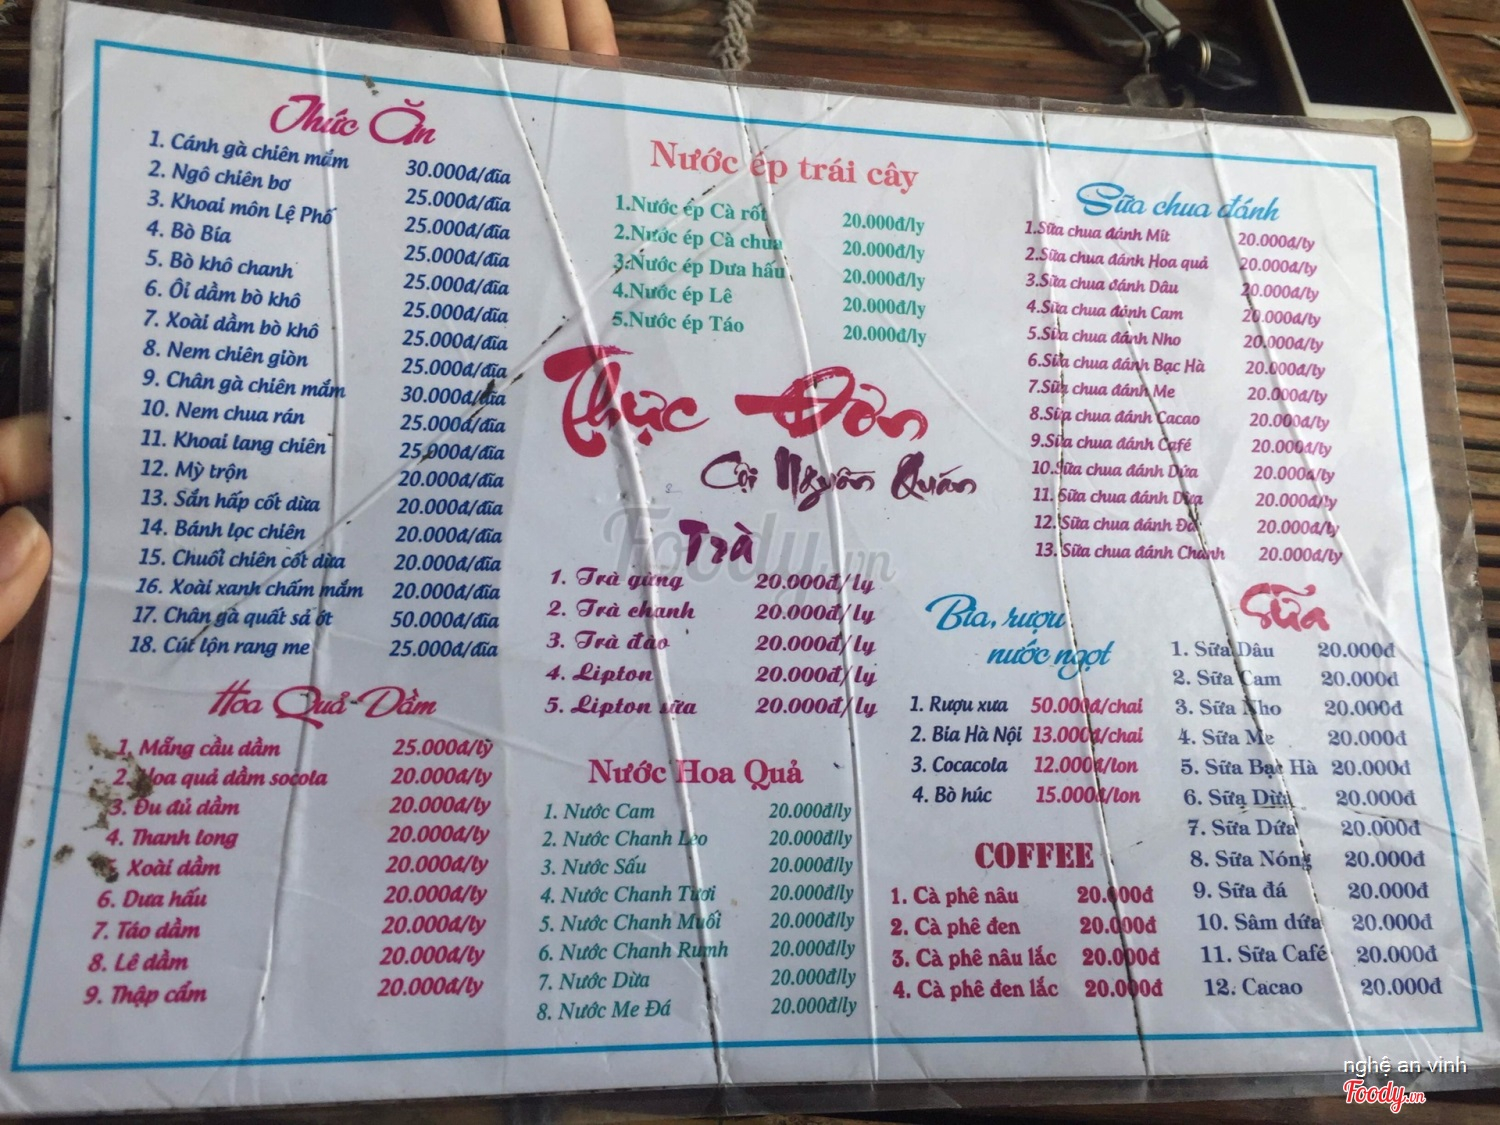 Thức Ăn
1. Cánh gà chiên mắm 30.000đ/đĩa
2. Ngô chiên bơ 25.000đ/đĩa
3. Khoai môn Lệ Phố 25.000đ/đĩa
4. Bò Bía 25.000đ/đĩa
5. Bò khô chanh 25.000đ/đĩa
6. Ổi dầm bò khô 25.000đ/đĩa
7. Xoài dầm bò khô 25.000đ/đĩa
8. Nem chiên giòn 25.000đ/đĩa
9. Chân gà chiên mắm 30.000đ/đĩa
10. Nem chua rán 25.000đ/đĩa
11. Khoai lang chiên 25.000đ/đĩa
12. Mỳ trộn 20.000đ/đĩa
13. Sắn hấp cốt dừa 20.000đ/đĩa
14. Bánh lọc chiên 20.000đ/đĩa
15. Chuối chiên cốt dừa 20.000đ/đĩa
16. Xoài xanh chấm mắm 20.000đ/đĩa
17. Chân gà quất sả ớt 50.000đ/đĩa
18. Cút lộn rang me 25.000đ/đĩa
Hoa Quả Dầm
1. Mãng cầu dầm 25.000đ/ly
2. Hoa quả dầm socola 20.000đ/ly
3. Đu đủ dầm 20.000đ/ly
4. Thanh long 20.000đ/ly
5 Xoài dầm 20.000đ/ly
6. Dưa hấu 20.000đ/ly
7. Táo dầm 20.000đ/ly
8. Lê dầm 20.000đ/ly
9. Thập cẩm 20.000đ/ly
Nước ép trái cây
1.Nước ép Cà rốt 20.000đ/ly
2.Nước ép Cà chua 20.000đ/ly
3.Nước ép Dưa hấu 20.000đ/ly
4.Nước ép Lê 20.000đ/ly
5.Nước ép Táo 20.000đ/ly
Thực Đơn
Cội Nguồn Quán
Trà
1. Trà gừng 20.000đ/ly
2. Trà chanh 20.000đ/ly
3. Trà đào 20.000đ/ly
4. Lipton 20.000đ/ly
5. Lipton sữa 20.000đ/ly
Nước Hoa Quả
1. Nước Cam 20.000đ/ly
2. Nước Chanh Leo 20.000đ/ly
3. Nước Sấu 20.000đ/ly
4. Nước Chanh Tươi 20.000đ/ly
5. Nước Chanh Muối 20.000đ/ly
6. Nước Chanh Rumh 20.000đ/ly
7. Nước Dừa 20.000đ/ly
8. Nước Me Đá 20.000đ/ly
Sữa chua đánh
1.Sữa chua đánh Mít 20.000đ/ly
2.Sữa chua đánh Hoa quả 20.000đ/ly
3.Sữa chua đánh Dâu 20.000đ/ly
4.Sữa chua đánh Cam 20.000đ/ly
5.Sữa chua đánh Nho 20.000đ/ly
6.Sữa chua đánh Bạc Hà 20.000đ/ly
7.Sữa chua đánh Me 20.000đ/ly
8.Sữa chua đánh Cacao 20.000đ/ly
9.Sữa chua đánh Café 20.000đ/ly
10.Sữa chua đánh Dứa 20.000đ/ly
11. Sữa chua đánh Dừa 20.000đ/ly
12. Sữa chua đánh Đá 20.000đ/ly
13. Sữa chua đánh Chanh 20.000đ/ly
Bia, rượu
nước ngọt
1. Rượu xưa 50.000đ/chai
2. Bia Hà Nội 13.000đ/chai
3. Cocacola 12.000đ/lon
4. Bò húc 15.000đ/lon
COFFEE
1. Cà phê nâu 20.000đ
2. Cà phê đen 20.000đ
3. Cà phê nâu lắc 20.000đ
4. Cà phê đen lắc 20.000đ
Sữa
1. Sữa Dâu 20.000đ
2. Sữa Cam 20.000đ
3. Sữa Nho 20.000đ
4. Sữa Me 20.000đ
5. Sữa Bạc Hà 20.000đ
6. Sữa Dừa 20.000đ
7. Sữa Dứa 20.000đ
8. Sữa Nóng 20.000đ
9. Sữa đá 20.000đ
10. Sâm dứa 20.000đ
11. Sữa Café 20.000đ
12. Cacao 20.000đ
Foody.vn
nghệ an vinh
Foody.vn